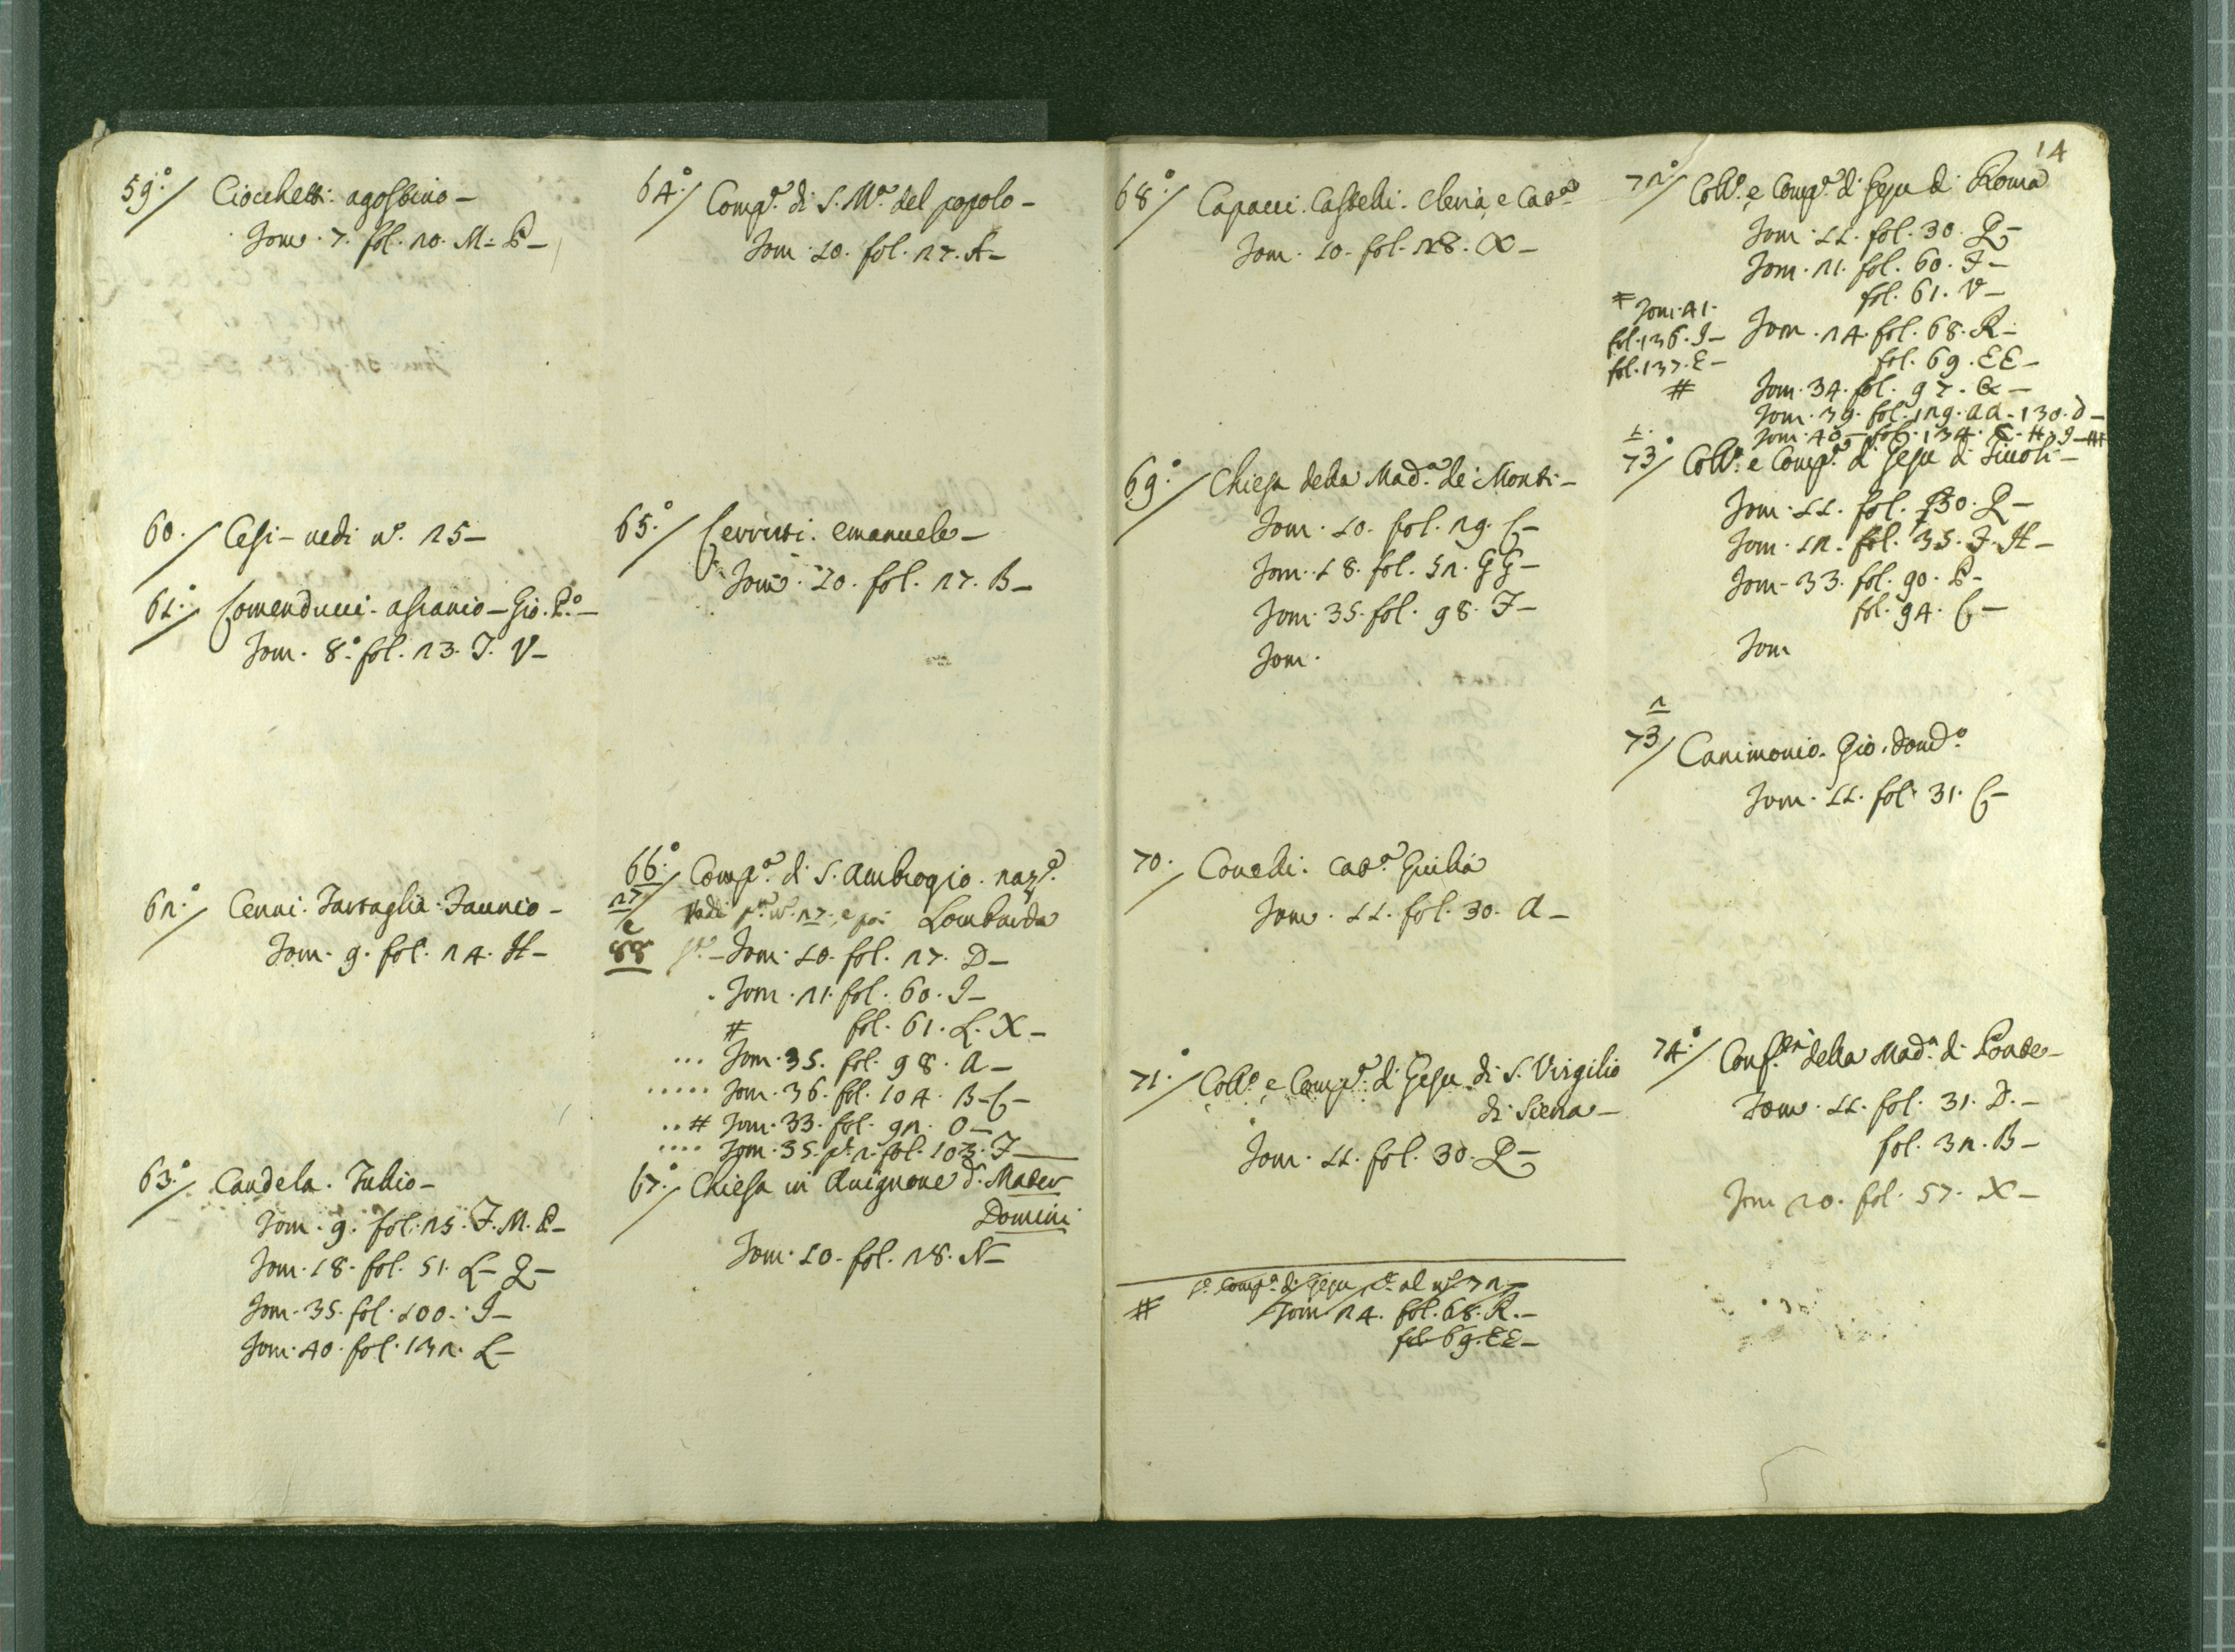 59°./ Ciocchetti. agostino-
Tom. 7. fol. 20. M. P-
60./ Cesi- vedi n°. 25-
61°./ Comenducci. ascanio- Gio. P.°-
Tom. 8°. fol. 23. T. V-
62°./ Cenni. Tartaglia. Faunio-
Tom. 9. fol. 24. H-
63°./ Candela. Tullio-
Tom. 9. fol. 25. F. M. P-
Tom. 18. fol. 51. L- Q-
Tom. 35. fol. 100. I-
Tom. 40. fol. 132. L-
64°./ Comp.ª di S. M.ª del popolo-
Tom. 10. fol. 27. A-
65°./ Cerruti. emanuele-
Tom. 10. fol. 27. B-
66°./ Comp.ª di S. ambrogio. naz.e
27/ Vedi p.ª n°. 27. e poi Lombarda
e
88 Tom. 10. fol. 27. D-
Tom. 21. fol. 60. I-
# fol. 61. L. X-
... Tom. 35. fol. 98. a-
..... Tom. 36. fol. 104. B- C-
..# Tom. 33. fol. 92. O-
.... Tom. 35. p.e 2. fol. 103. F-
67°./ Chiesa in Avignone d.ª Mater
Domini
Tom. 10. fol. 28. N-
14
68°./ Capacci. Castelli. Clevia, e Cat.ª
Tom. 10. fol. 28. X-
69°./ Chiesa della Mad.ª de Monti-
Tom. 10. fol. 29. C-
Tom. 18. fol. 52. GG-
Tom. 35. fol. 98. F-
Tom.
70./ Conelli. Cat.ª Giulia
Tom. 11. fol. 30. a-
71°./ Coll.° e Comp.ª di Gesu di S. Virgilio
di Siena-
Tom. 11. fol. 30. Q-
Comp.ª di Gesu al n° 72-
# Tom 24. fol. 68. R.-
fol. 69. EE-
72°/ Coll.° e Comp.ª di Gesu di Roma
Tom. 11. fol. 30. Q-
Tom. 21. fol. 60. F-
fol. 61. V-
# Tom. 41.
fol. 136. I-
fol. 137. E-
#
Tom. 24. fol. 68. R-
fol. 69. EE-
Tom. 34. fol. 97. G-
Tom. 39. fol. 129. aa- 130. d-
Tom. 40- fol. 134. C- H. I-#
1.
73°/ Coll.° e Comp.ª di Gesu di Tivoli-
Tom. 11. fol. 30. Q-
Tom. 12. fol. 35. F. H-
Tom- 33. fol. 90. P-
fol. 94. C-
Tom
2
73/ Canimonio. Gio. Dom.°
Tom. 11. fol. 31. C-
74°./ Conf. della Mad.ª di Ponte-
Tom. 11. fol. 31. D.-
fol. 32. B-
Tom 20. fol. 57. X-